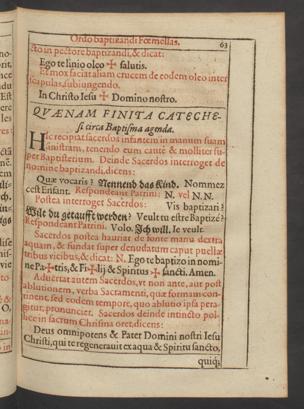 Ordo baptizandi Fœmellas. 63
cto in pectore baptizandi, & dicat:
Ego te linio oleo ✠ salutis.
Et mox faciat aliam crucem de eodem oleo inter
scapulas, subiungendo.
In Christo Iesu ✠ Domino nostro.
QVÆNAM FINITA CATECHE-
si circa Baptisma agenda.
Hic recipiat sacerdos infantem in manum suam
sinistram, tenendo eum cautè & molliter su-
per Baptisterium. Deinde Sacerdos interroget de
nomine baptizandi, dicens:
Quæ vocaris? Nennend das Kind. Nommez
cest Enfant. Respondeant Patrini: N. vel N.N.
Postea interroget Sacerdos: Vis baptizari?
Wilt du getaufft werden? Veult tu estre Baptizé?
Respondeant Patrini. Volo. Ich will. Ie veult.
Sacerdos postea hauriat de fonte manu dextra
aquam, & fundat super denudatum caput puellæ
tribus vicibus, & dicat: N. Ego te baptizo in nomi-
ne Pa✠tris, & Fi✠lij & Spiritus ✠ sancti. Amen.
Aduertat autem Sacerdos, vt non ante, aut post
ablutionem, verba Sacramenti, quæ formam con-
tinent, sed eodem tempore, quo ablutio ipsa pera-
gitur, pronunciet. Sacerdos deinde intincto pol-
lice in sacrum Chrisma oret, dicens:
Deus omnipotens & Pater Domini nostri Iesu
Christi, qui te regenerauit ex aqua & Spiritu sancto,
quiq;